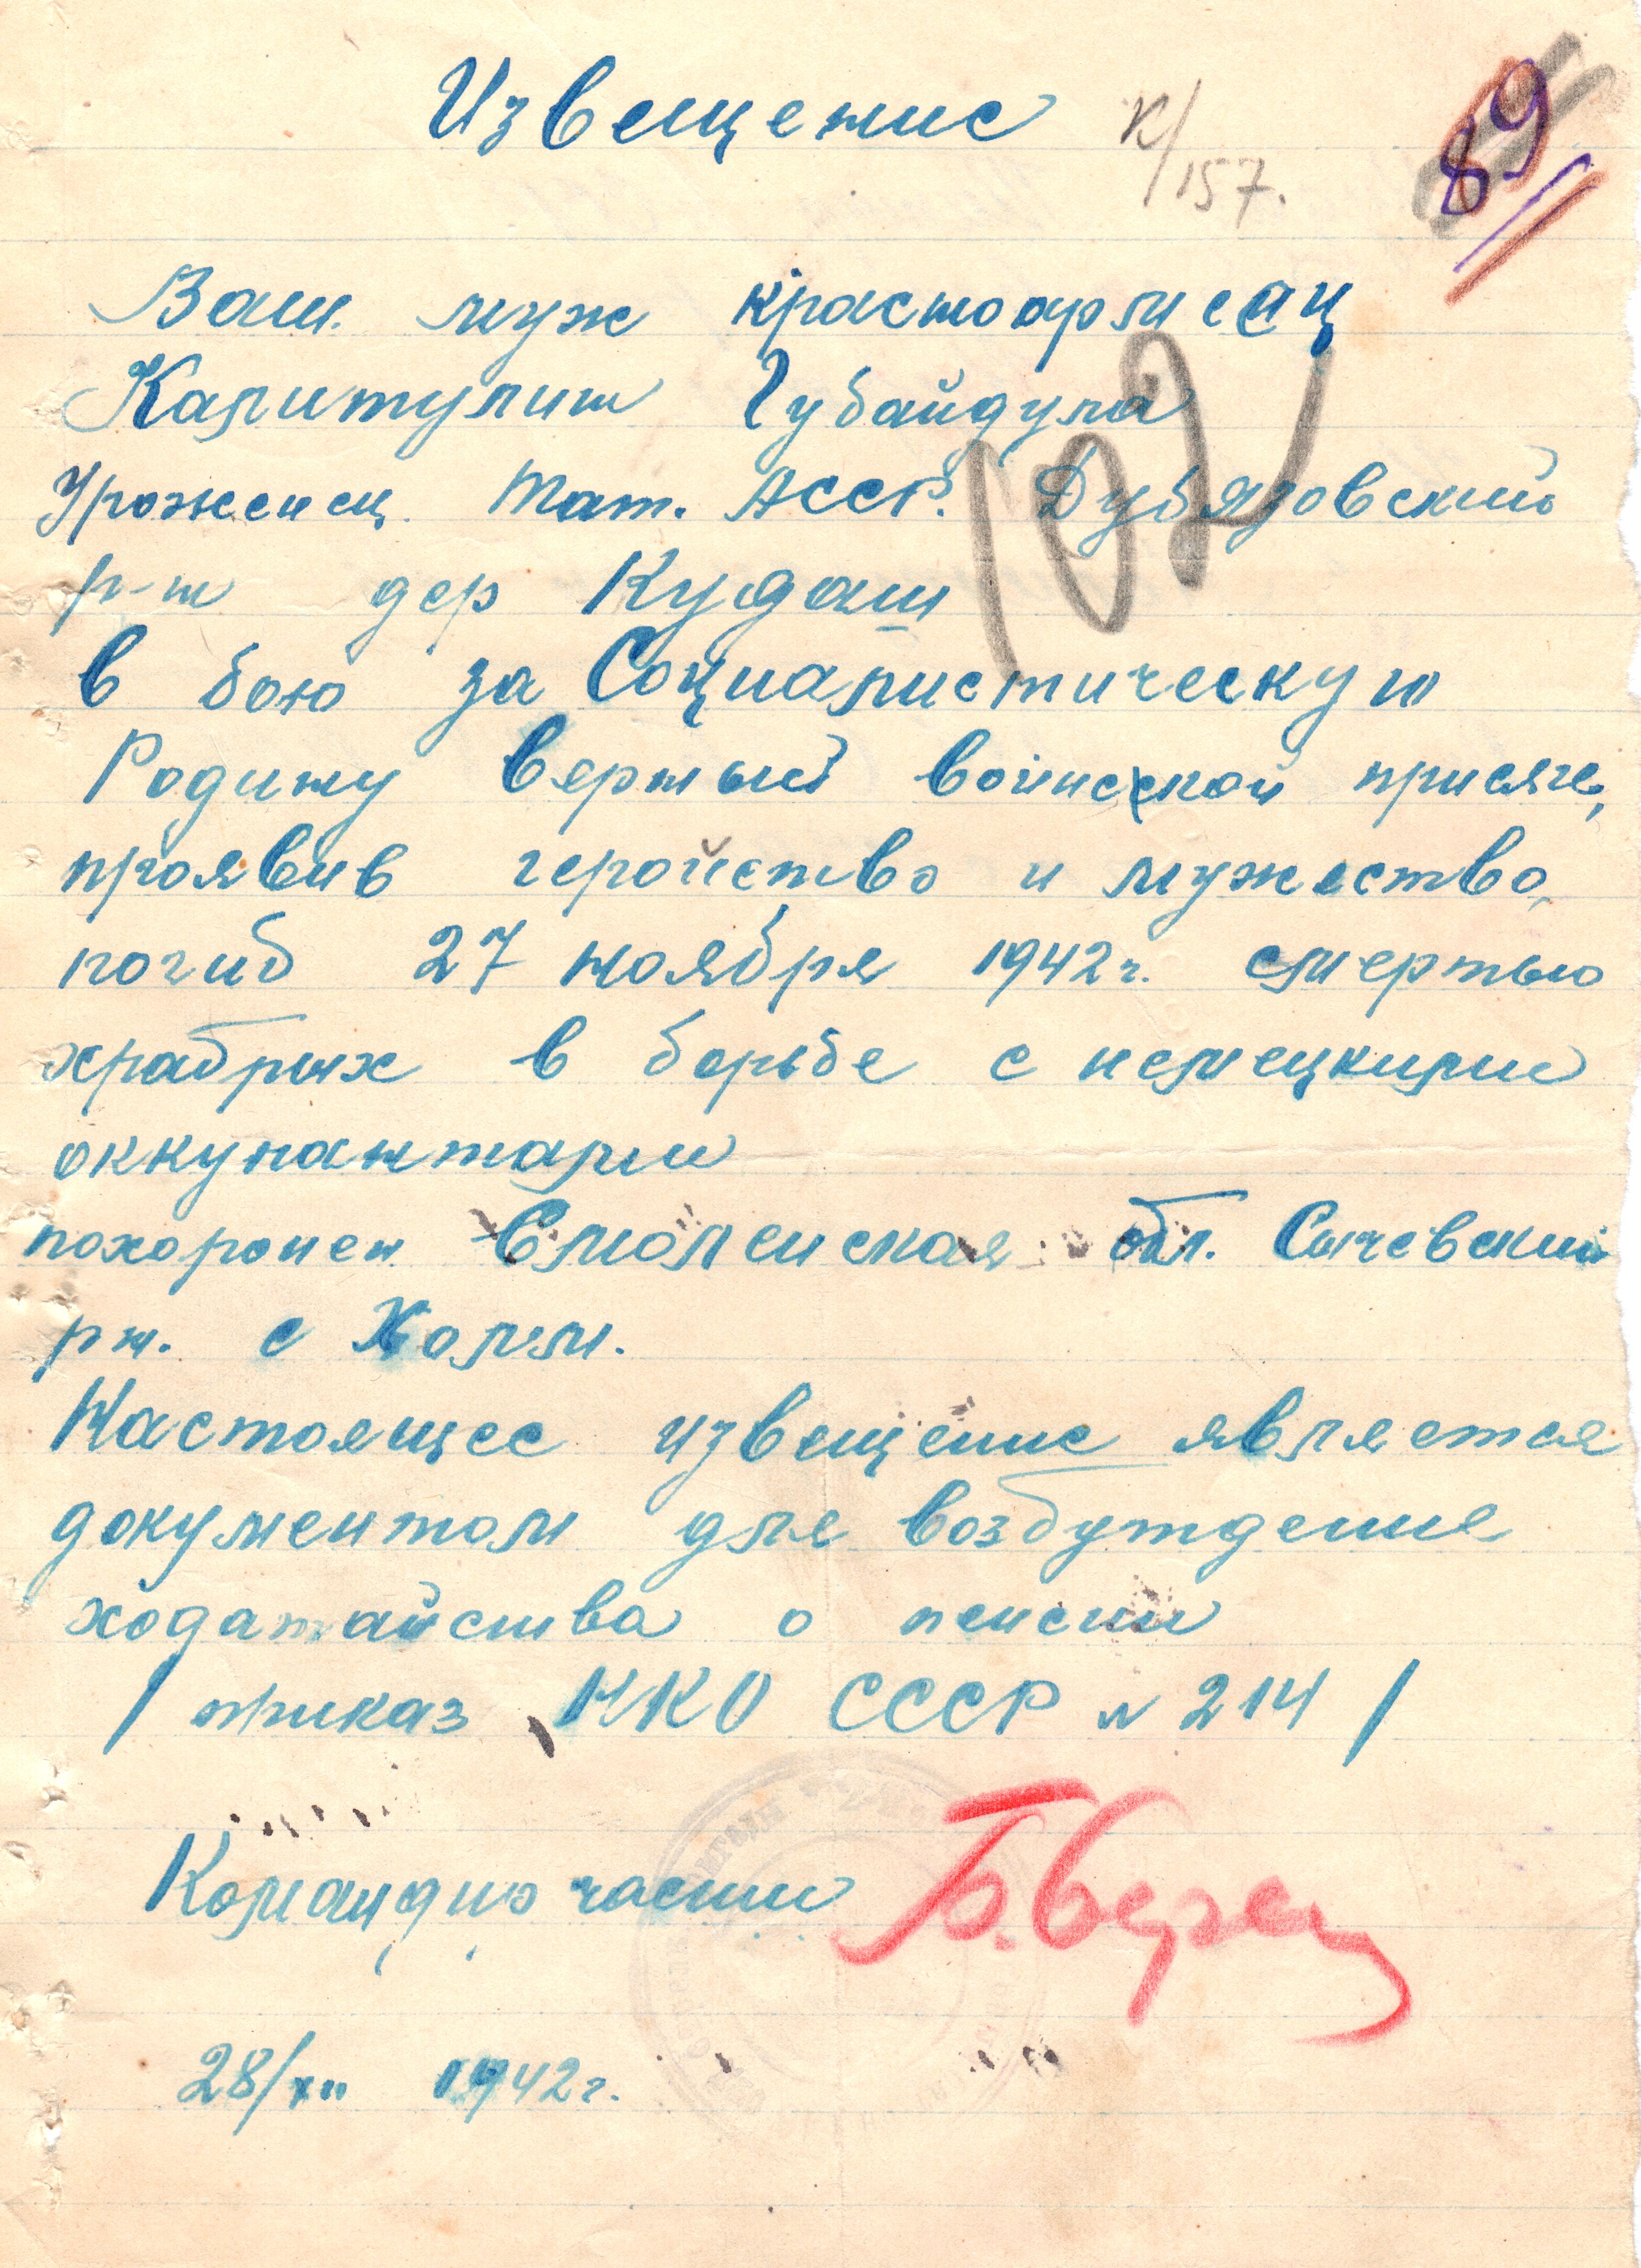 Извещение
к/157.
89
Ваш муж красноармеец
Калимулин Губайдула
102
Уроженец Тат. АССР. Дубязовский
р-н дер Кудаш
в бою за Социалистическую
Родину верный воинской присяге,
проявив геройство и мужество,
погиб 27 ноября 1942г. смертью
храбрых в борьбе с немецкими
оккупантами
похоронен Смоленская обл. Сычевский
рн. с Холм.
Настоящее извещение является
документом для возбуждение
ходатайства о пенсии
/ приказ НКО СССР № 214 /
Командир части
28/XII 1942г.